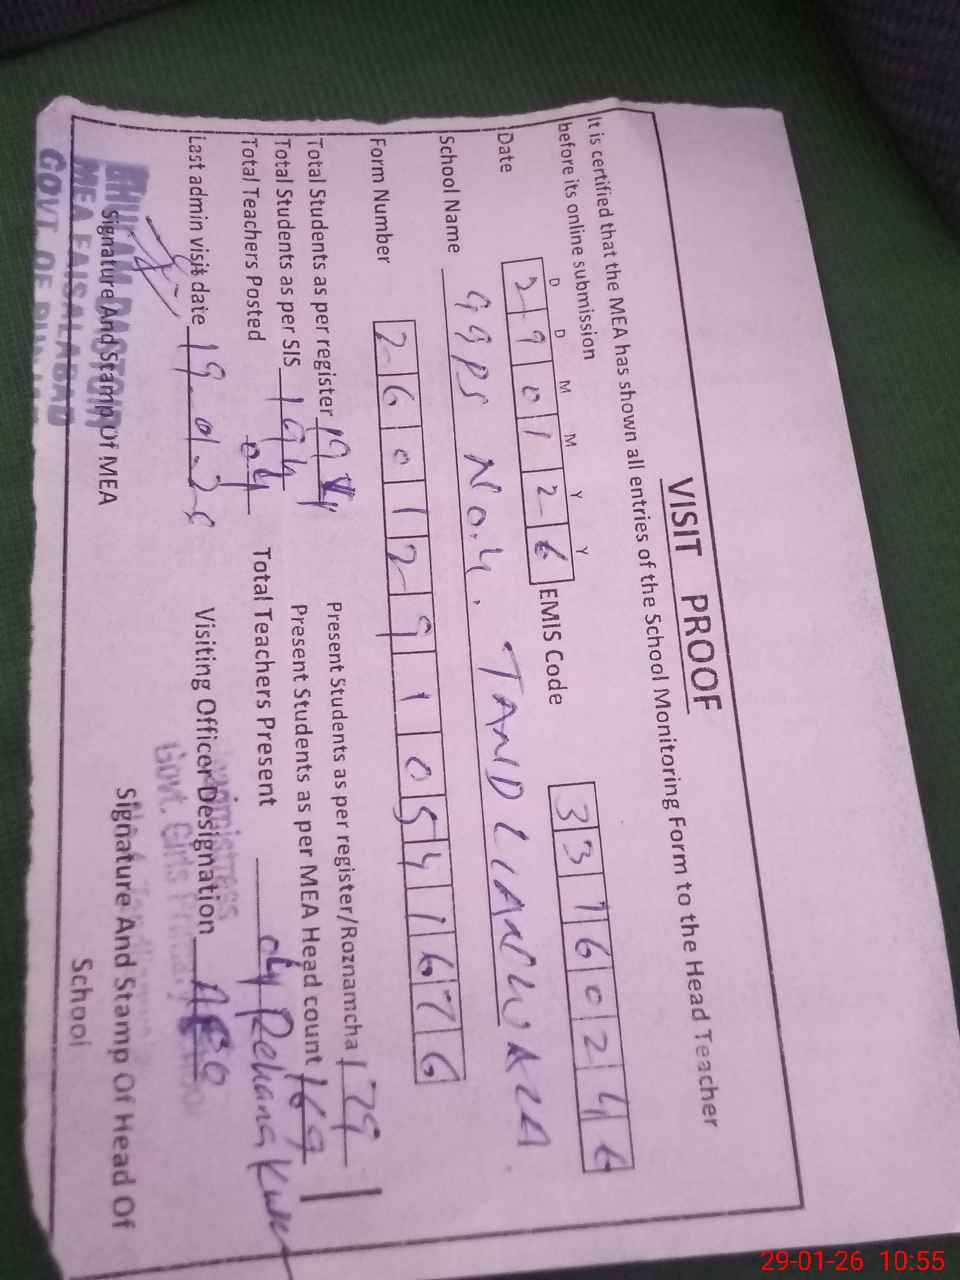 VISIT PROOF
It is certified that the MEA has shown all entries of the School Monitoring Form to the Head Teacher
before its online submission
D D M M Y Y
Date 290126 EMIS Code 33160246
School Name GGPS No.4. TANDLIANWALA
Form Number 26012910541676
Total Students as per register 194 Present Students as per register/Roznamcha 179
Total Students as per SIS 194 Present Students as per MEA Head count 169
Total Teachers Posted 04 Total Teachers Present 04 Rehana
Last admin visit date 19.01.26 Visiting Officer Designation AEO
Signature And Stamp Of MEA Signature And Stamp Of Head Of
School
MEA FAISALABAD
GOVT. OF
Govt. Girls
29-01-26 10:55